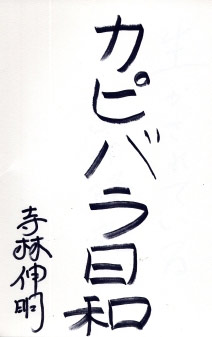 カピバラ日和
寺林伸明